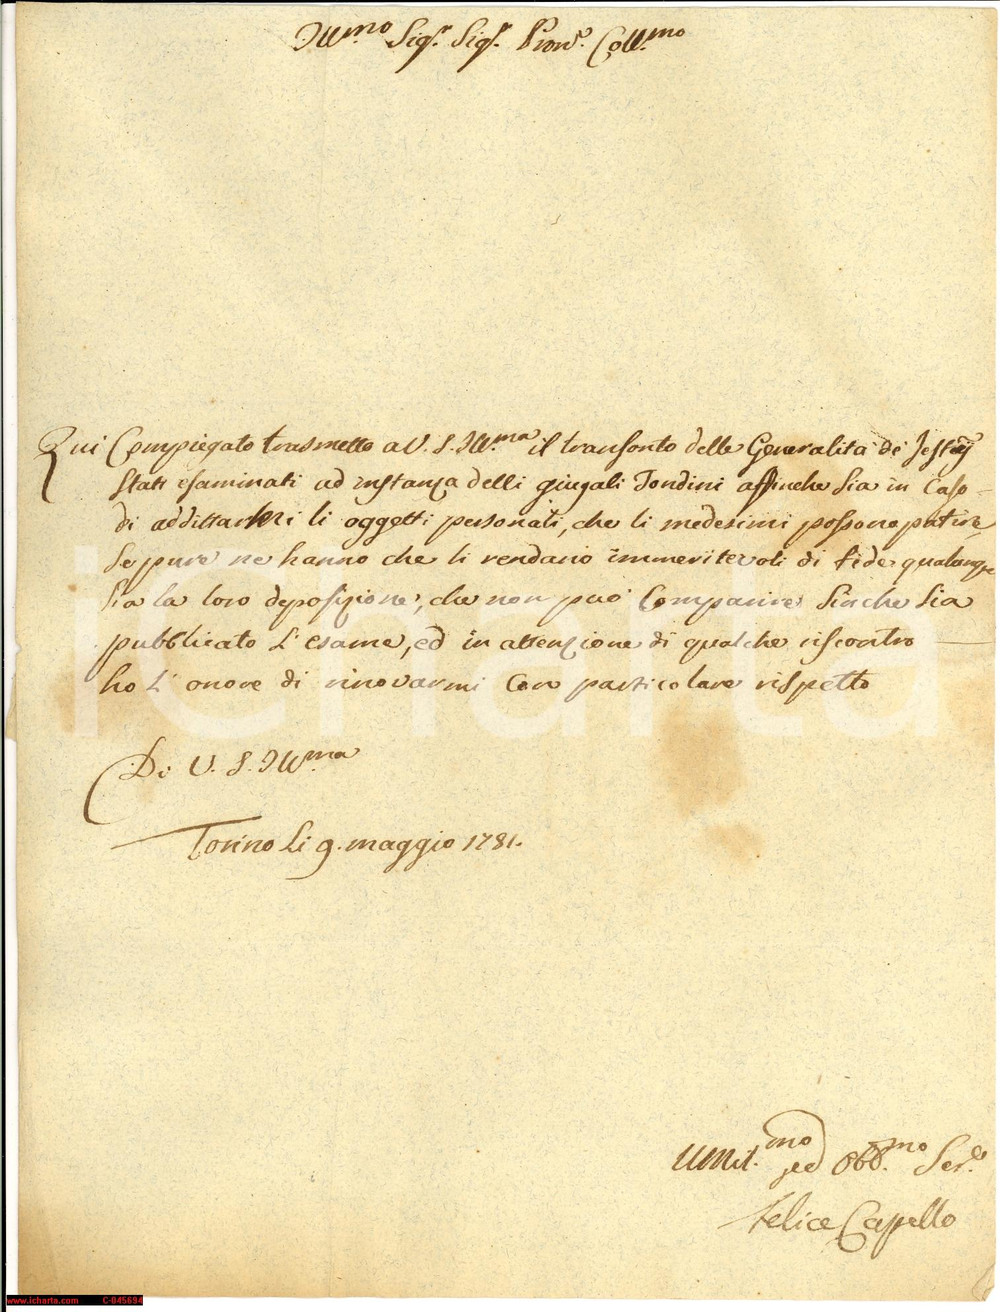 Ill.mo Sig.r Sig.r Pron.e Coll.mo
Qui Compiegato trasmetto a V. S. Ill.ma il transonto delle Generalità de' Testij
stati esaminati ad instanza delli giugali Tondini affinche sia in Caso
di addittarmi li oggetti personali, che li medesimi possono patire,
se pure ne hanno che li rendano immeritevoli di fede qualonque
sia la loro deposizione, che non può Comparire sinche sia
pubblicato l'esame, ed in attenzione di qualche riscontro
ho l'onore di rinovarmi Con particolare rispetto
Di V. S. Ill.ma
Torino li 9. maggio 1781.
Umil.mo ed Obb.mo Ser.e
Felice Capello
icharta
www.icharta.com C-045694